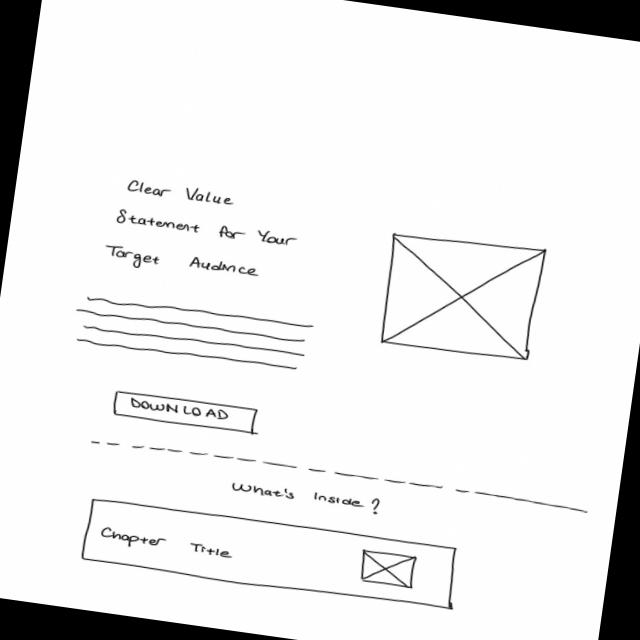 Clear Value
Statement for Your
Target Audnce
DOWNLOAD
What's Inside?
Chapter Title